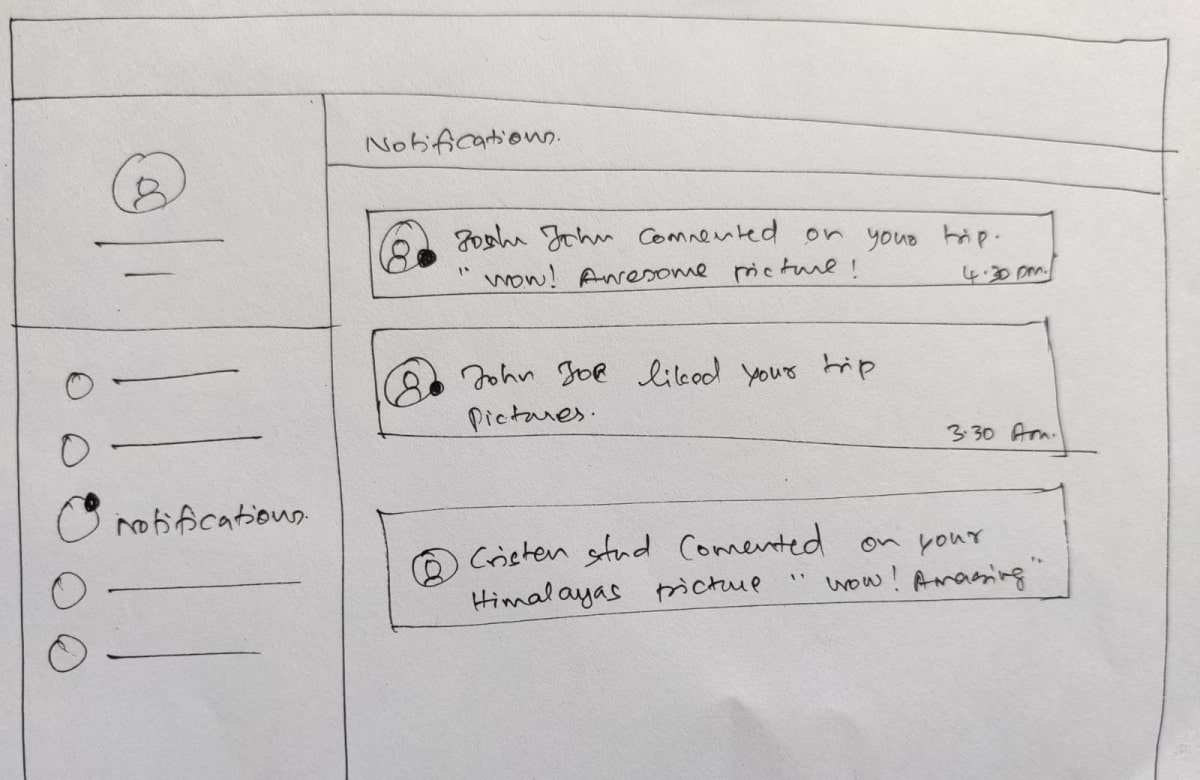 Notifications.
Josh John Commented on your trip.
"wow! Awesome picture!
4.30 pm.
John Joe liked your trip
Pictures.
3.30 Am.
Notifications.
Cristen stud Comented on your
Himalayas picture "wow! Amazing"